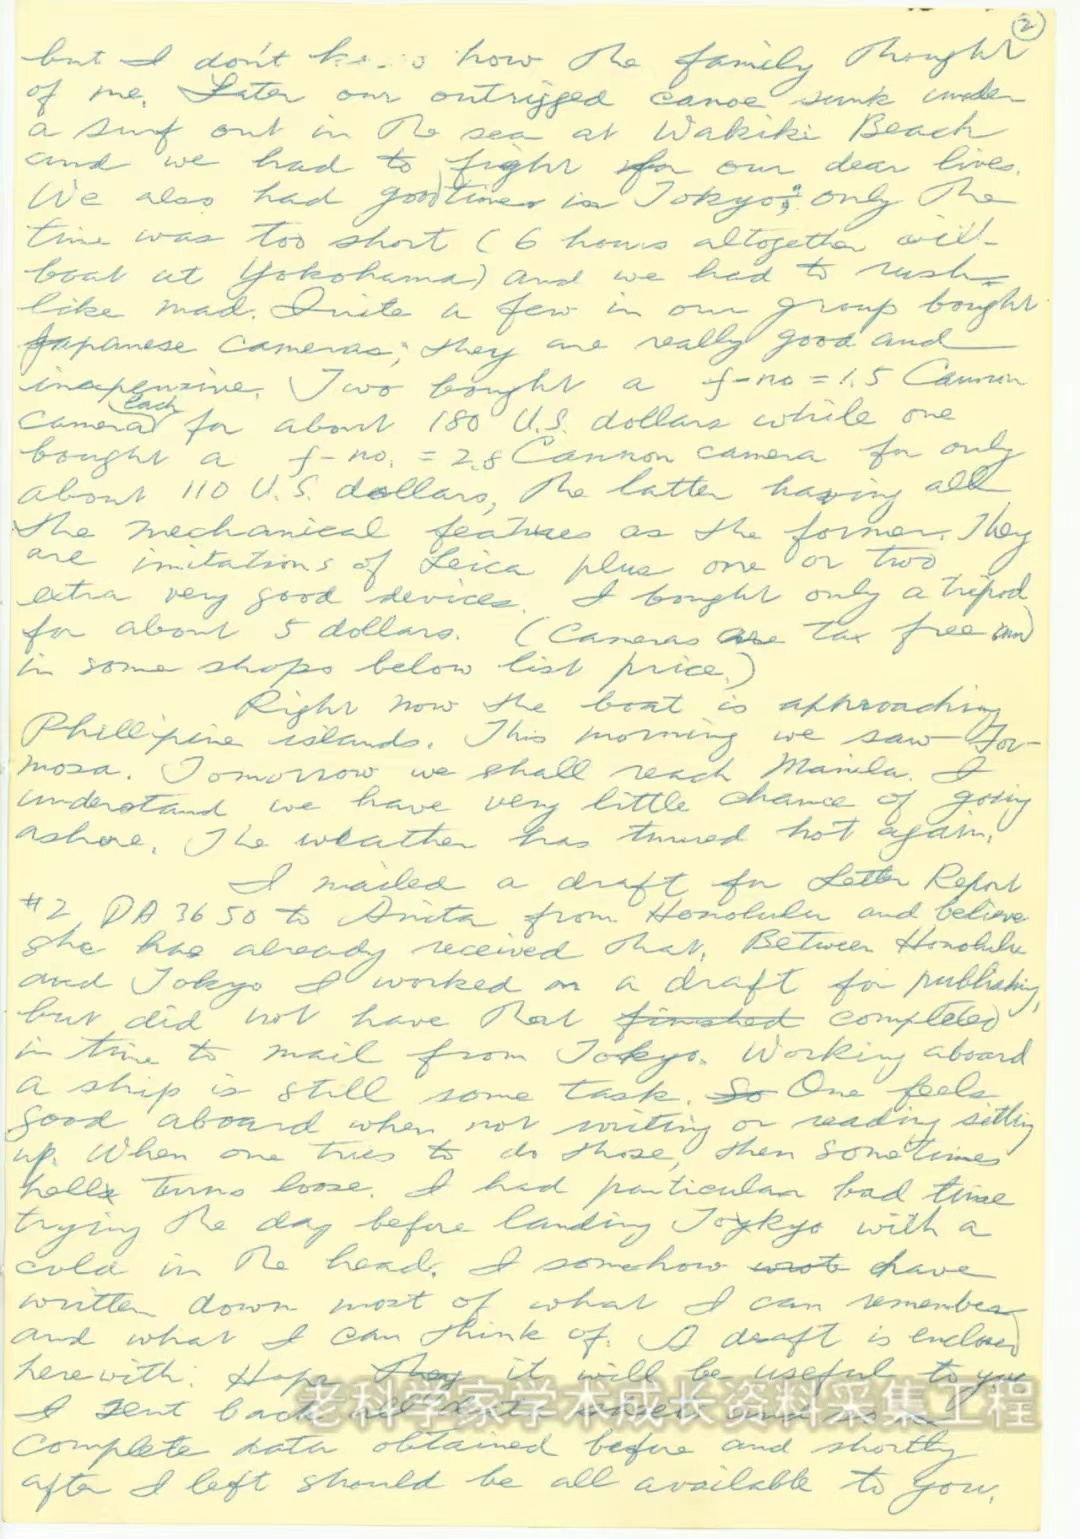 ②
but I don't how the family thought
of me. Later our outrigged canoe sunk under
a surf out in the sea at Wakiki Beach
and we had to fight for our dear lives.
We also had good times in Tokyo; only the
time was too short (6 hours altogether with
boat at Yokohama) and we had to rush
like mad. Quite a few in our group bought
Japanese cameras; they are really good and
inexpensive. Two bought a f-no = 1.5 Cannon
camera each for about 180 U.S. dollars while one
bought a f-no. = 2.8 Cannon camera for only
about 110 U.S. dollars, the latter having all
the mechanical features as the former. They
are imitations of Leica plus one or two
extra very good devices. I bought only a tripod
for about 5 dollars. (Cameras are tax free and
in some shops below list price.)
Right now the boat is approaching
Phillipine islands. This morning we saw For-
mosa. Tomorrow we shall reach Manila. I
understand we have very little chance of going
ashore. The weather has turned hot again.
I mailed a draft for Letter Report
#2, DA 3650 to Anita from Honolulu and believe
she has already received that. Between Honolulu
and Tokyo I worked on a draft for publishing,
but did not have that finished completed
in time to mail from Tokyo. Working aboard
a ship is still some task. So One feels
good aboard when not writing or reading sitting
up. When one tries to do those, then sometimes
hell turns loose. I had particular bad time
trying the day before landing Toykyo with a
cold in the head. I somehow wrote have
written down most of what I can remember
and what I can think of. A draft is enclosed
herewith. Hope they it will be useful to you
I sent back
老科学家学术成长资料采集工程
complete data obtained before and shortly
after I left should be all available to you.